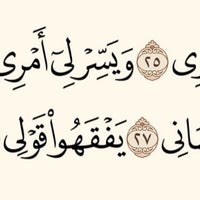 رِى ٢٥ وَيَسِّرْ لِىٓ أَمْرِى
انِى ٢٧ يَفْقَهُوا۟ قَوْلِى